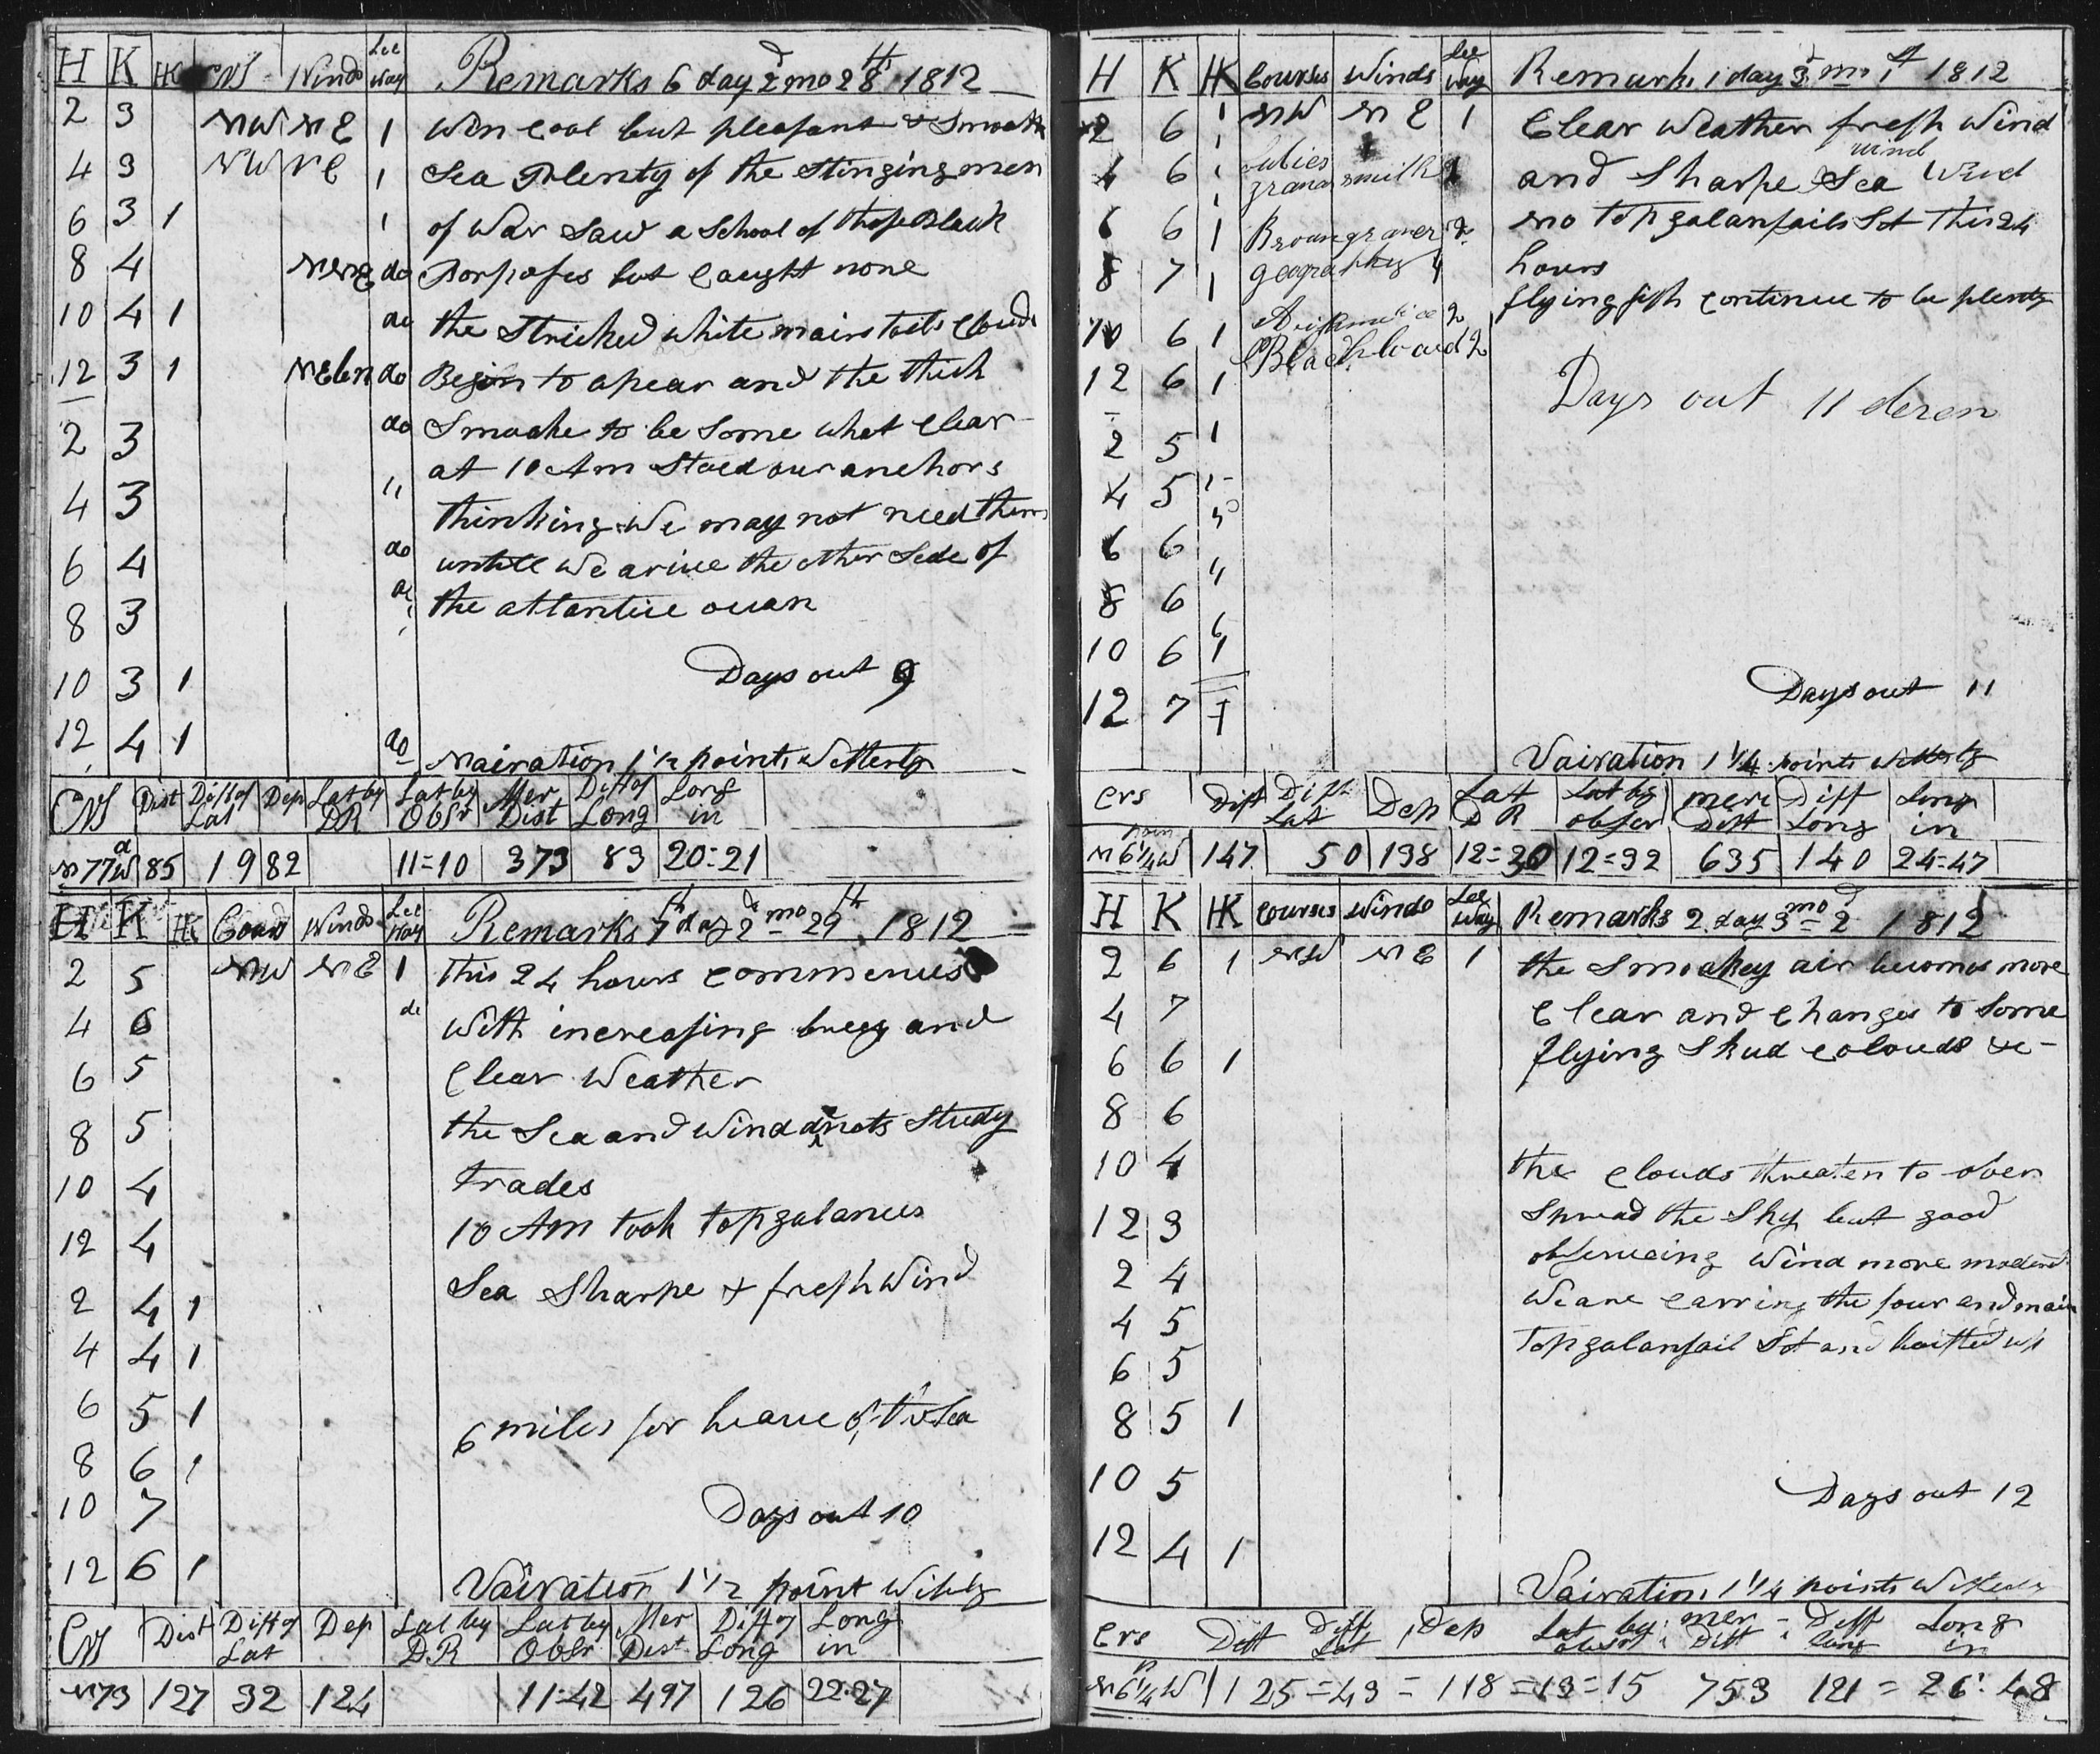 H K HK Crs Winds Lee Way Remarks 6 day 2d mo 28th 1812
2 3 NW NE 1 Win Cool but pleasant & Smooth
4 3 NW NE 1 Sea Plenty of the Stinging men
6 3 1 1 of War Saw a School of those Black
8 4 NENE do Porposes but Caught none
10 4 1 do the Strieked white mairs tails Clouds
12 3 1 NEbN do Begin to apear and the thick
2 3 do Smoake to be Some what Clear
at 10 Am Stoed our anchors
4 3 " thinking We may not need them
6 4 do untill We arive the other Side of
8 3 do the atlantice ouan
10 3 1 Days out 9
12 4 1 do
Vairation 1 1/2 points Westerly
Crs Dist Diff of Lat Dep Lat by DR Lat by Obsr Mer Dist Diff of Long Long in
N 77d W 85 19 82 11=10 373 83 20=21
H K HK Cours Winds Lee Way Remarks 7th day 2d mo 29th 1812
2 5 NW NE 1 this 24 hours Commences
4 6 do With increasing breez and
6 5 Clear Weather
8 5 the Sea and Wind dnots Study
10 4 trades
12 4 10 Am took topgalances
2 4 1 Sea Sharpe & fresh Wind
4 4 1
6 5 1 6 miles for heave of the Sea
8 6 1
10 7 Days out 10
12 6 1
Vairation 1 1/2 point Wibly
Crs Dist Diff of Lat Dep Lat by DR Lat by Obsr Mer Dist Diff of Long Long in
N 73 127 32 124 11=42 497 126 22=27
H K HK Courses Winds Lee Way Remarks 1 day 3d mo 1st 1812
2 6 1 NW NE 1 Clear Weather fresh Wind
wind
4 6 1 and Sharpe Sea Wind
6 6 1 no topgalansails Set this 24
8 7 1 geography 4 hours
flying fish Continue to be plenty
10 6 1 2
12 6 1 Blackboard 2
Days out 11
2 5 1
4 5 1
6 6 "
8 6 "
10 6 1
12 7 1 Days out 11
Vairation 1 1/4 points Westerly
Crs Dist Diff Lat Dep Lat D R Lat by obser meri Dist Diff Long Long in
N 6 1/4 W 147 50 138 12=30 12=32 635 140 24=47
H K HK Courses Winds Lee Way Remarks 2 day 3 mo 2d 1812
2 6 1 NW NE 1 the Smoakey air becomes more
4 7 Clear and Changes to Some
6 6 1 flying Skud colouds &c
8 6
10 4 the Clouds threaten to over
12 3 Spread the Sky but good
2 4 observeing Wind more moderd
4 5 We are Carring the four and main
6 5 topgalansail Set and hoisted up
8 5 1
10 5 Days out 12
12 4 1
Vairation 1 1/4 points Westerly
Crs Dist Diff Lat Dep Lat by obsr mer Dist Diff Long Long in
N 6 1/4 W 125=43=118=13=15 753 121=26:48